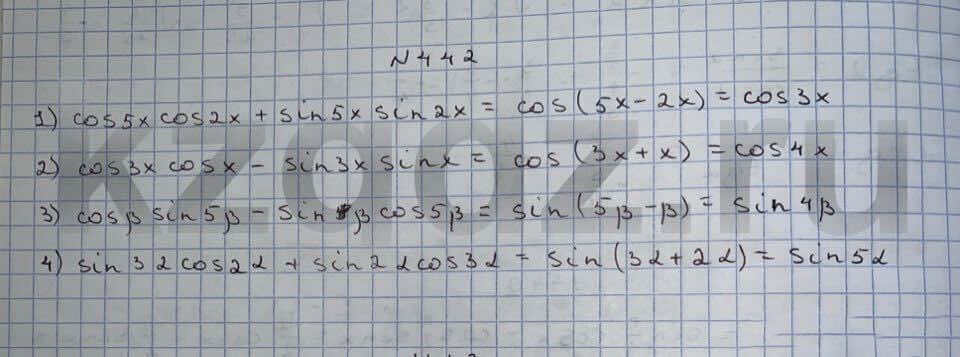 N 442
1) cos5x cos2x + sin5x sin2x = cos(5x - 2x) = cos3x
2) cos3x cosx - sin3x sinx = cos(3x + x) = cos4x
3) cosβ sin5β - sinβ cos5β = sin(5β - β) = sin4β
4) sin3α cos2α + sin2α cos3α = sin(3α + 2α) = sin5α
kzgdz.ru